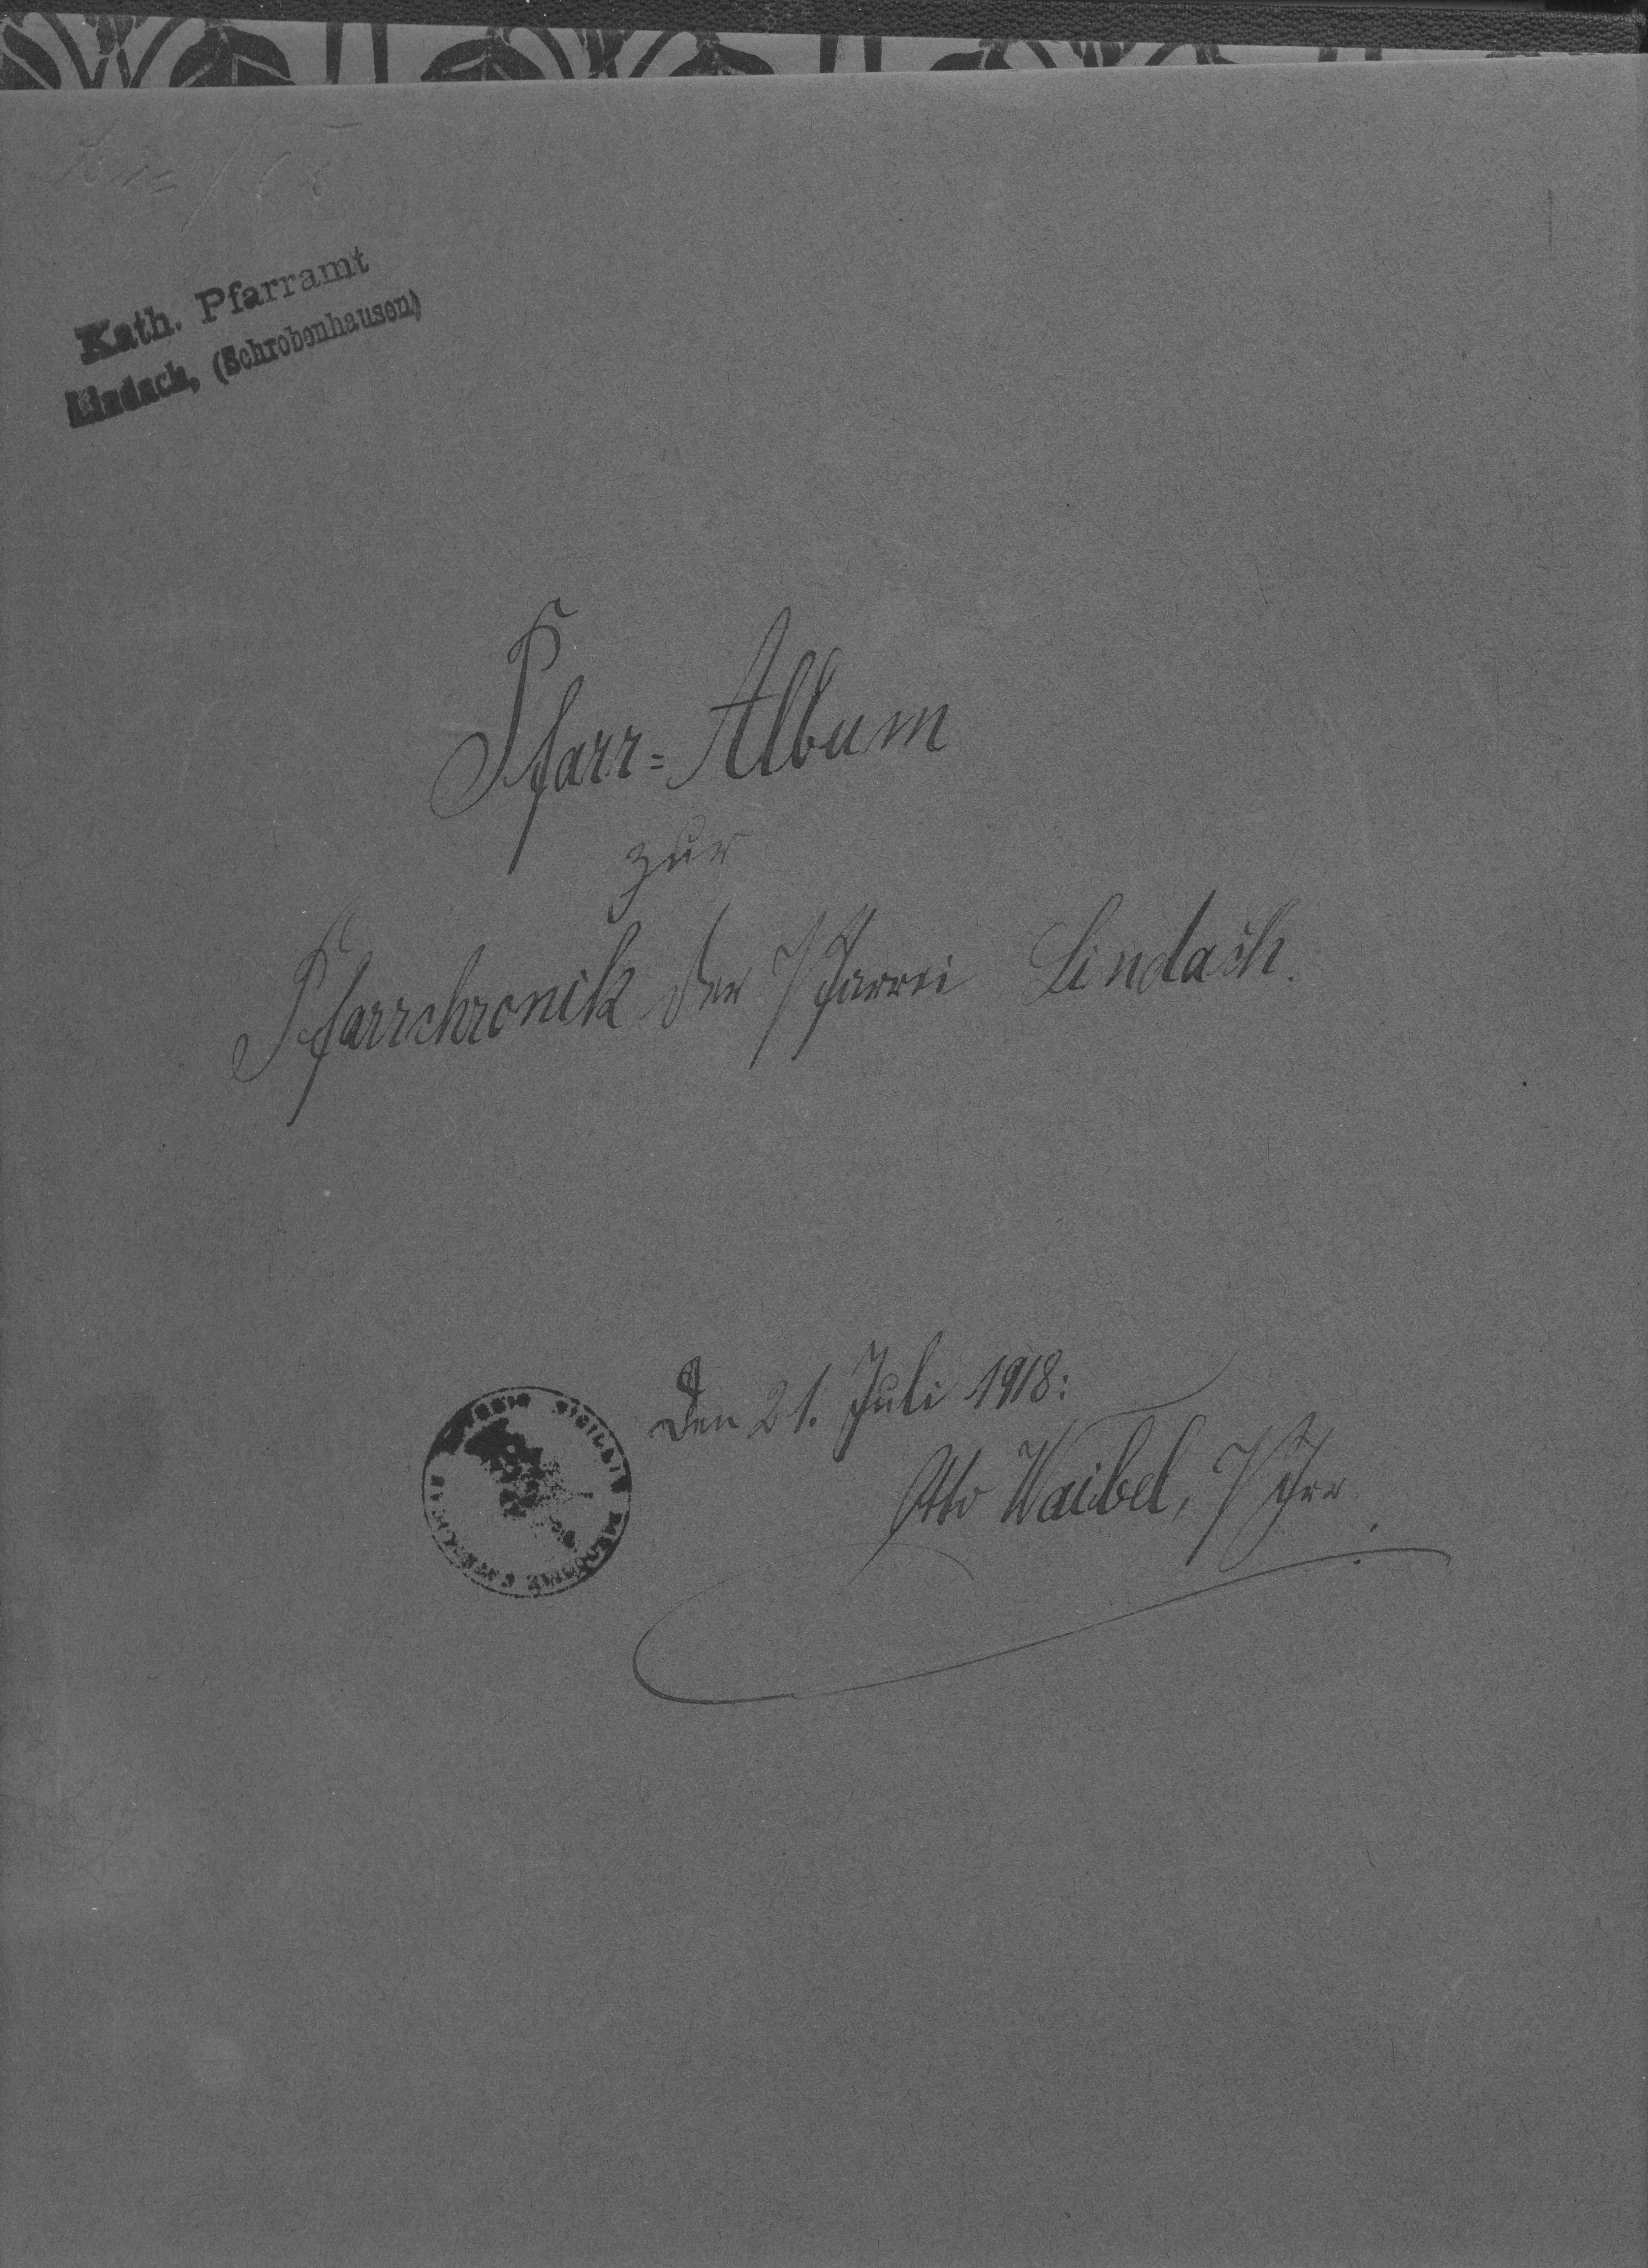 Kath. Pfarramt
Lindach, (Schrobenhausen)
Pfarr=Album
zur
Pfarrchronik der Pfarrei Lindach.
Den 21. Juli 1918:
Otto Waibel, Pfr.